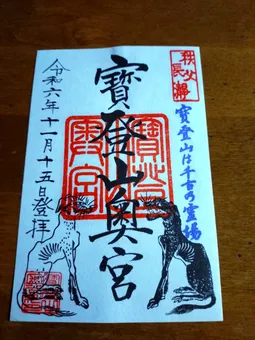 秩父
長瀞
寶登山は千古の霊場
寶登山奥宮
令和六年十一月十五日登拝